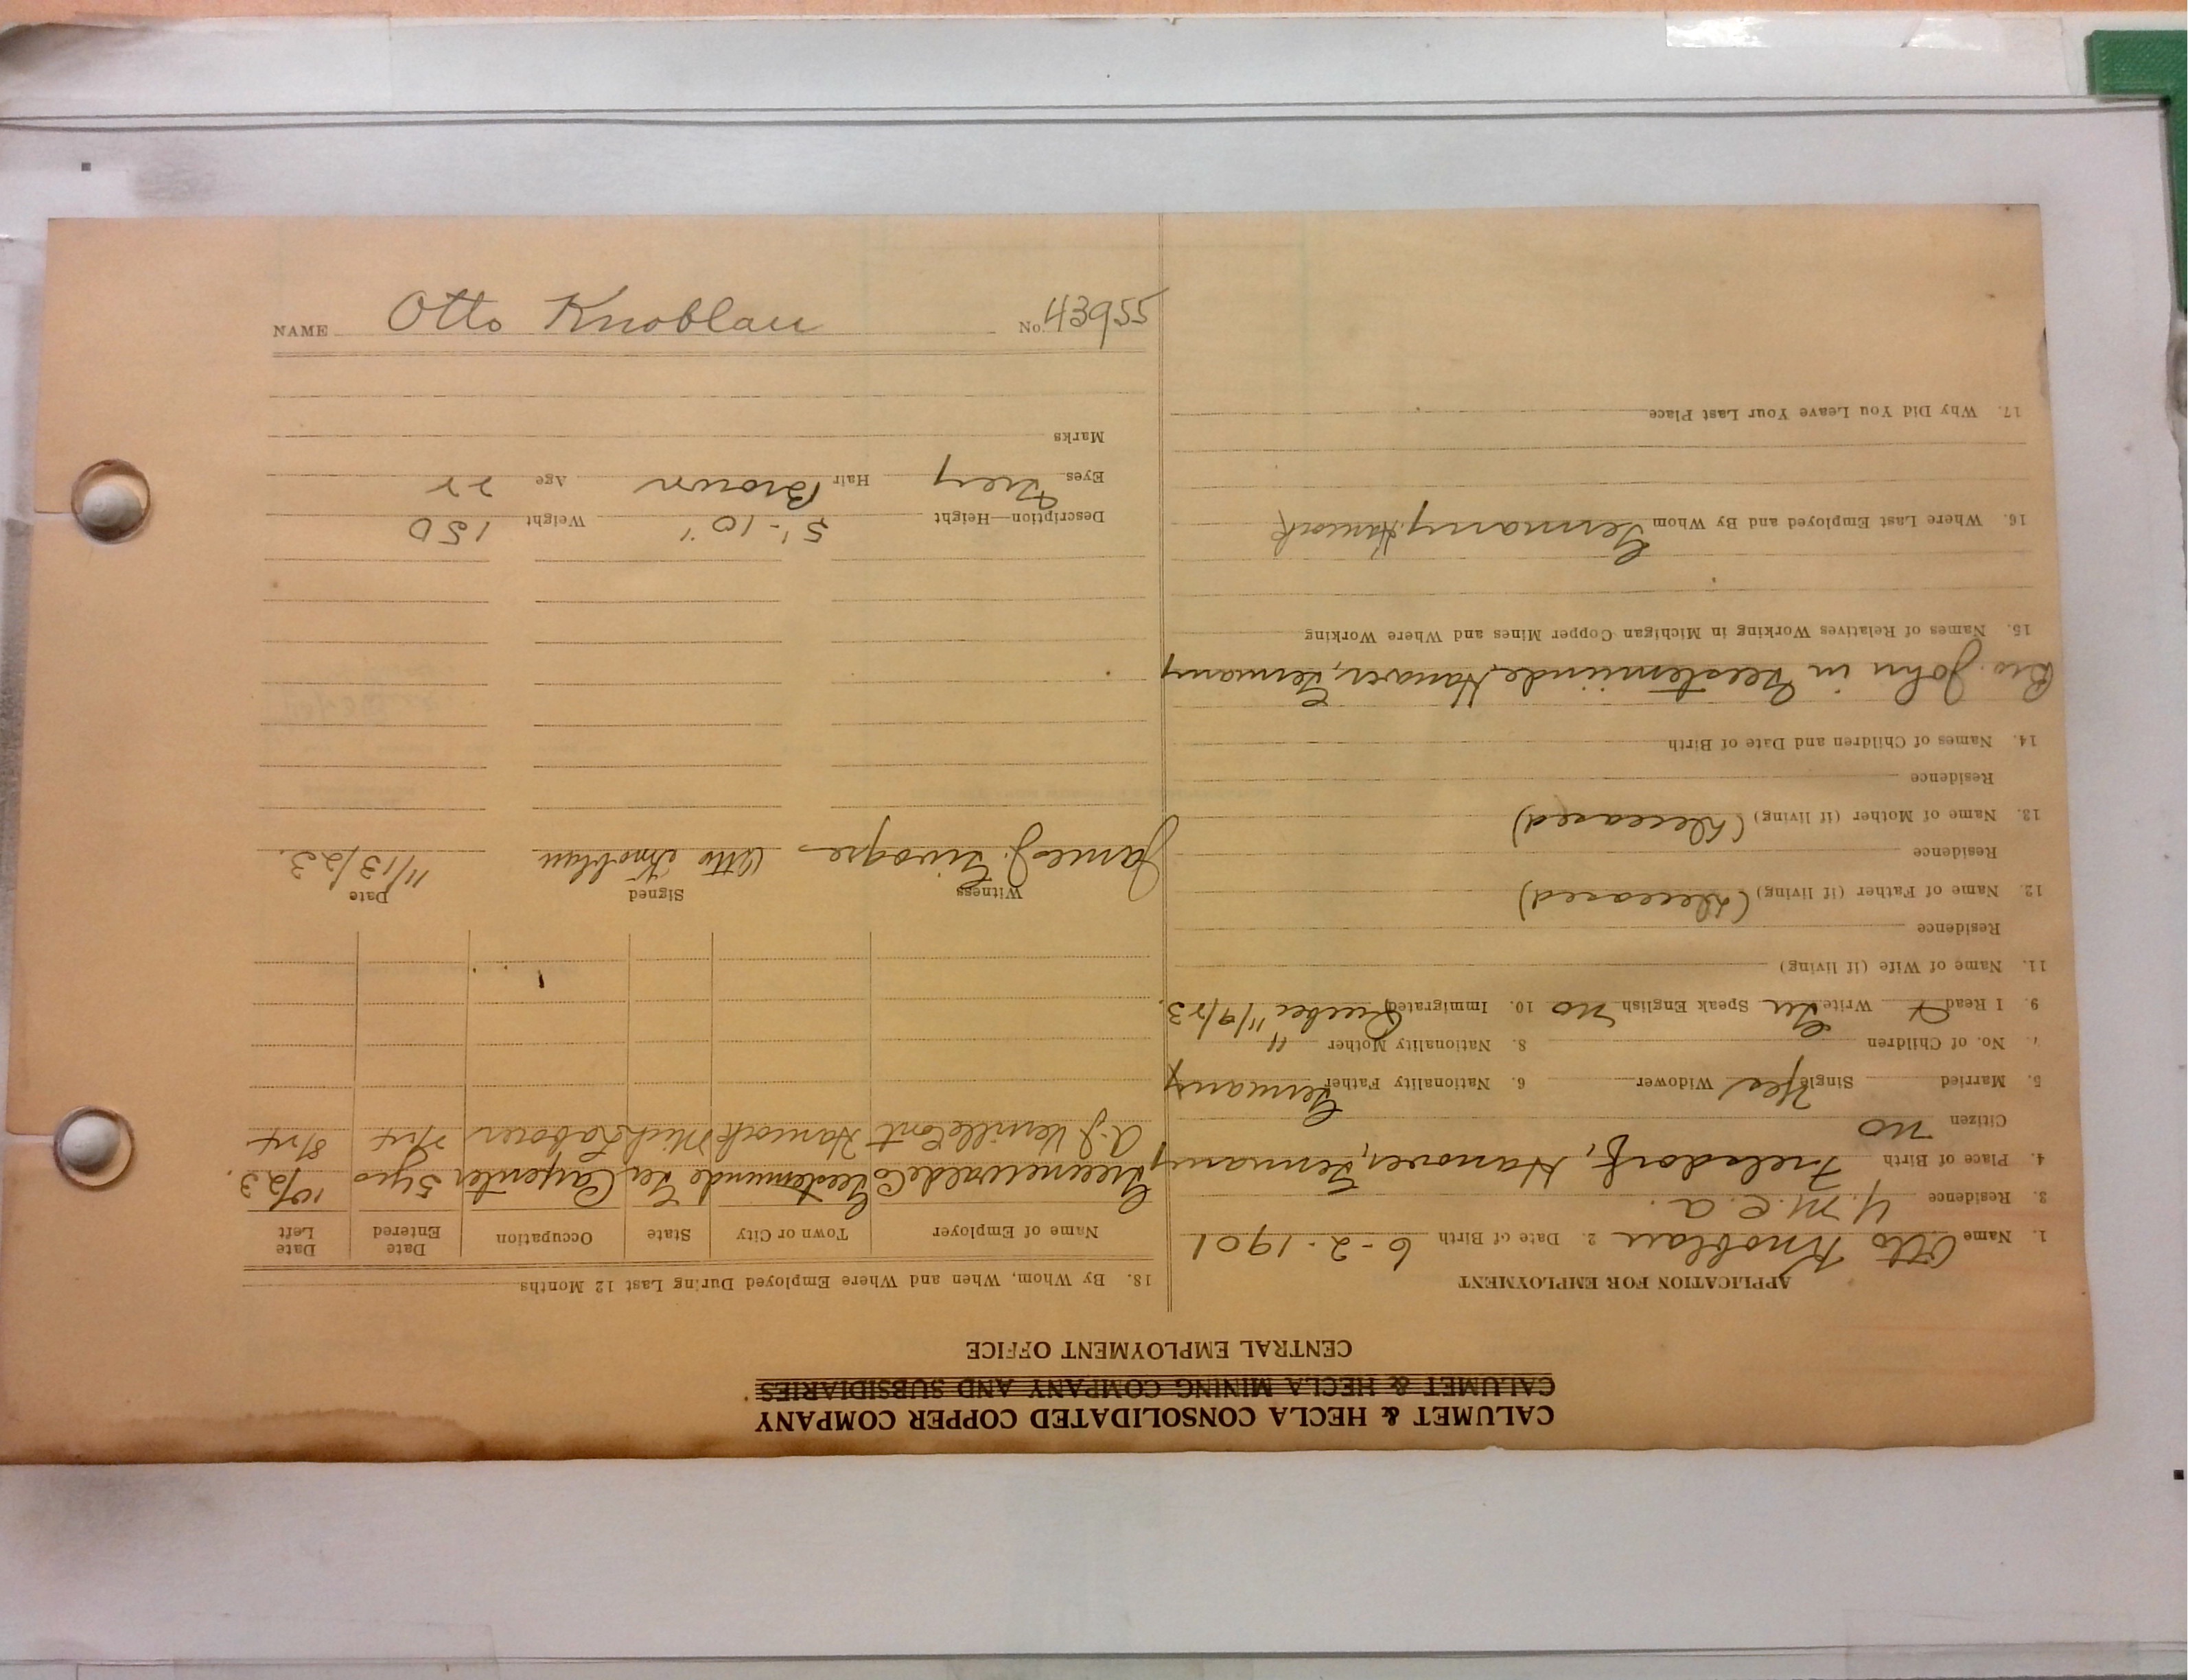 CALUMET & HECLA CONSOLIDATED COPPER COMPANY
CALUMET & HECLA MINING COMPANY AND SUBSIDIARIES
CENTRAL EMPLOYMENT OFFICE
APPLICATION FOR EMPLOYMENT
1. Name Otto Knoblau 2. Date of Birth 6-2-1901
3. Residence Y.M.C.A.
4. Place of Birth Frelsdorf, Hanover, Germany
Citizen no
5. Married Single Yes Widower 6. Nationality Father Germany
7. No. of Children 8. Nationality Mother "
9. I Read & Write Ger Speak English no 10. Immigrated Quebec 11/9/23.
11. Name of Wife (if living)
Residence
12. Name of Father (if living) (Deceased)
Residence
13. Name of Mother (if living) (Deceased)
Residence
14. Names of Children and Date of Birth
Bro. John in Geestemünde, Hanover, Germany
15. Names of Relatives Working in Michigan Copper Mines and Where Working
16. Where Last Employed and By Whom Germany, Hancock
17. Why Did You Leave Your Last Place
18. By Whom, When and Where Employed During Last 12 Months
Name of Employer Town or City State Occupation Date Entered Date Left
Geestemunde Ger Carpenter 5 yrs 10/23.
A.J. Verville Cont Hancock Mich Laborer 2/24 8/24
Witness Signed Date
James J. Otto Knoblau 11/13/23.
Description—Height 5'-10" Weight 150
Eyes Grey Hair Brown Age 22
Marks
NAME Otto Knoblau No. 43955